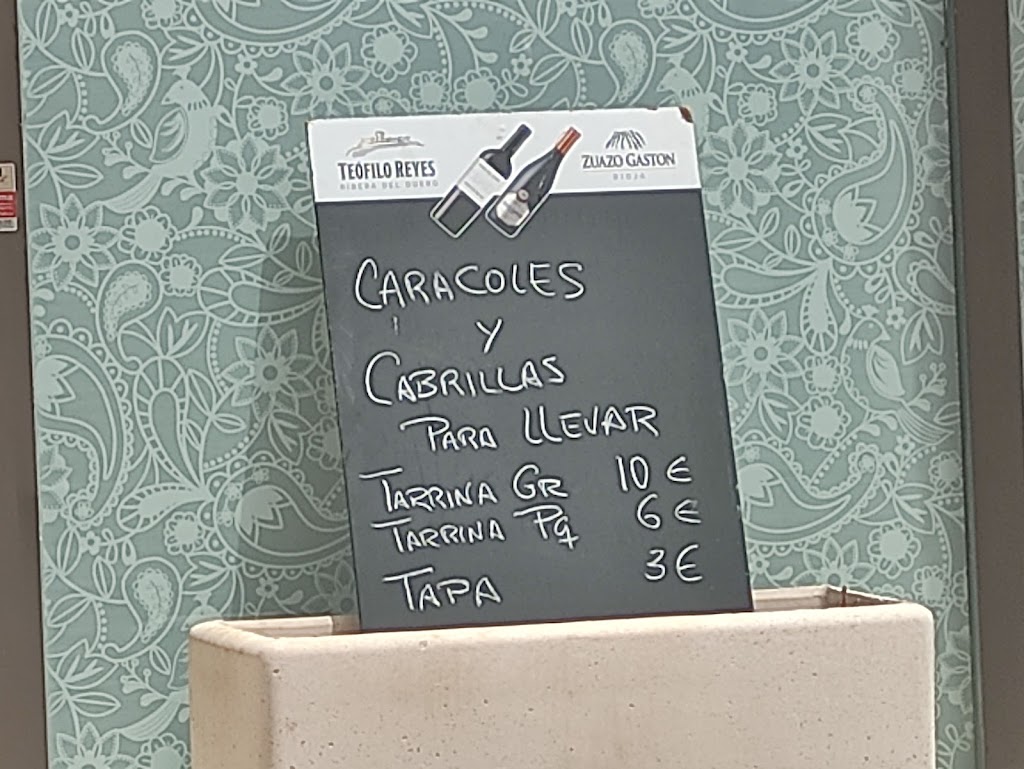 TEÓFILO REYES
RIBERA DEL DUERO
ZUAZO GASTON
RIOJA
CARACOLES
Y
CABRILLAS
PARA LLEVAR
TARRINA GR 10 €
TARRINA PQ 6 €
TAPA 3 €